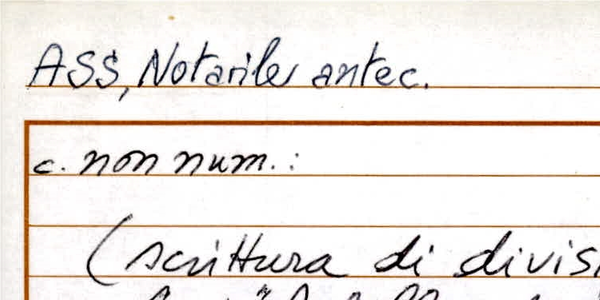 ASS, Notarile antec.
c. non num.:
(scrittura di divis